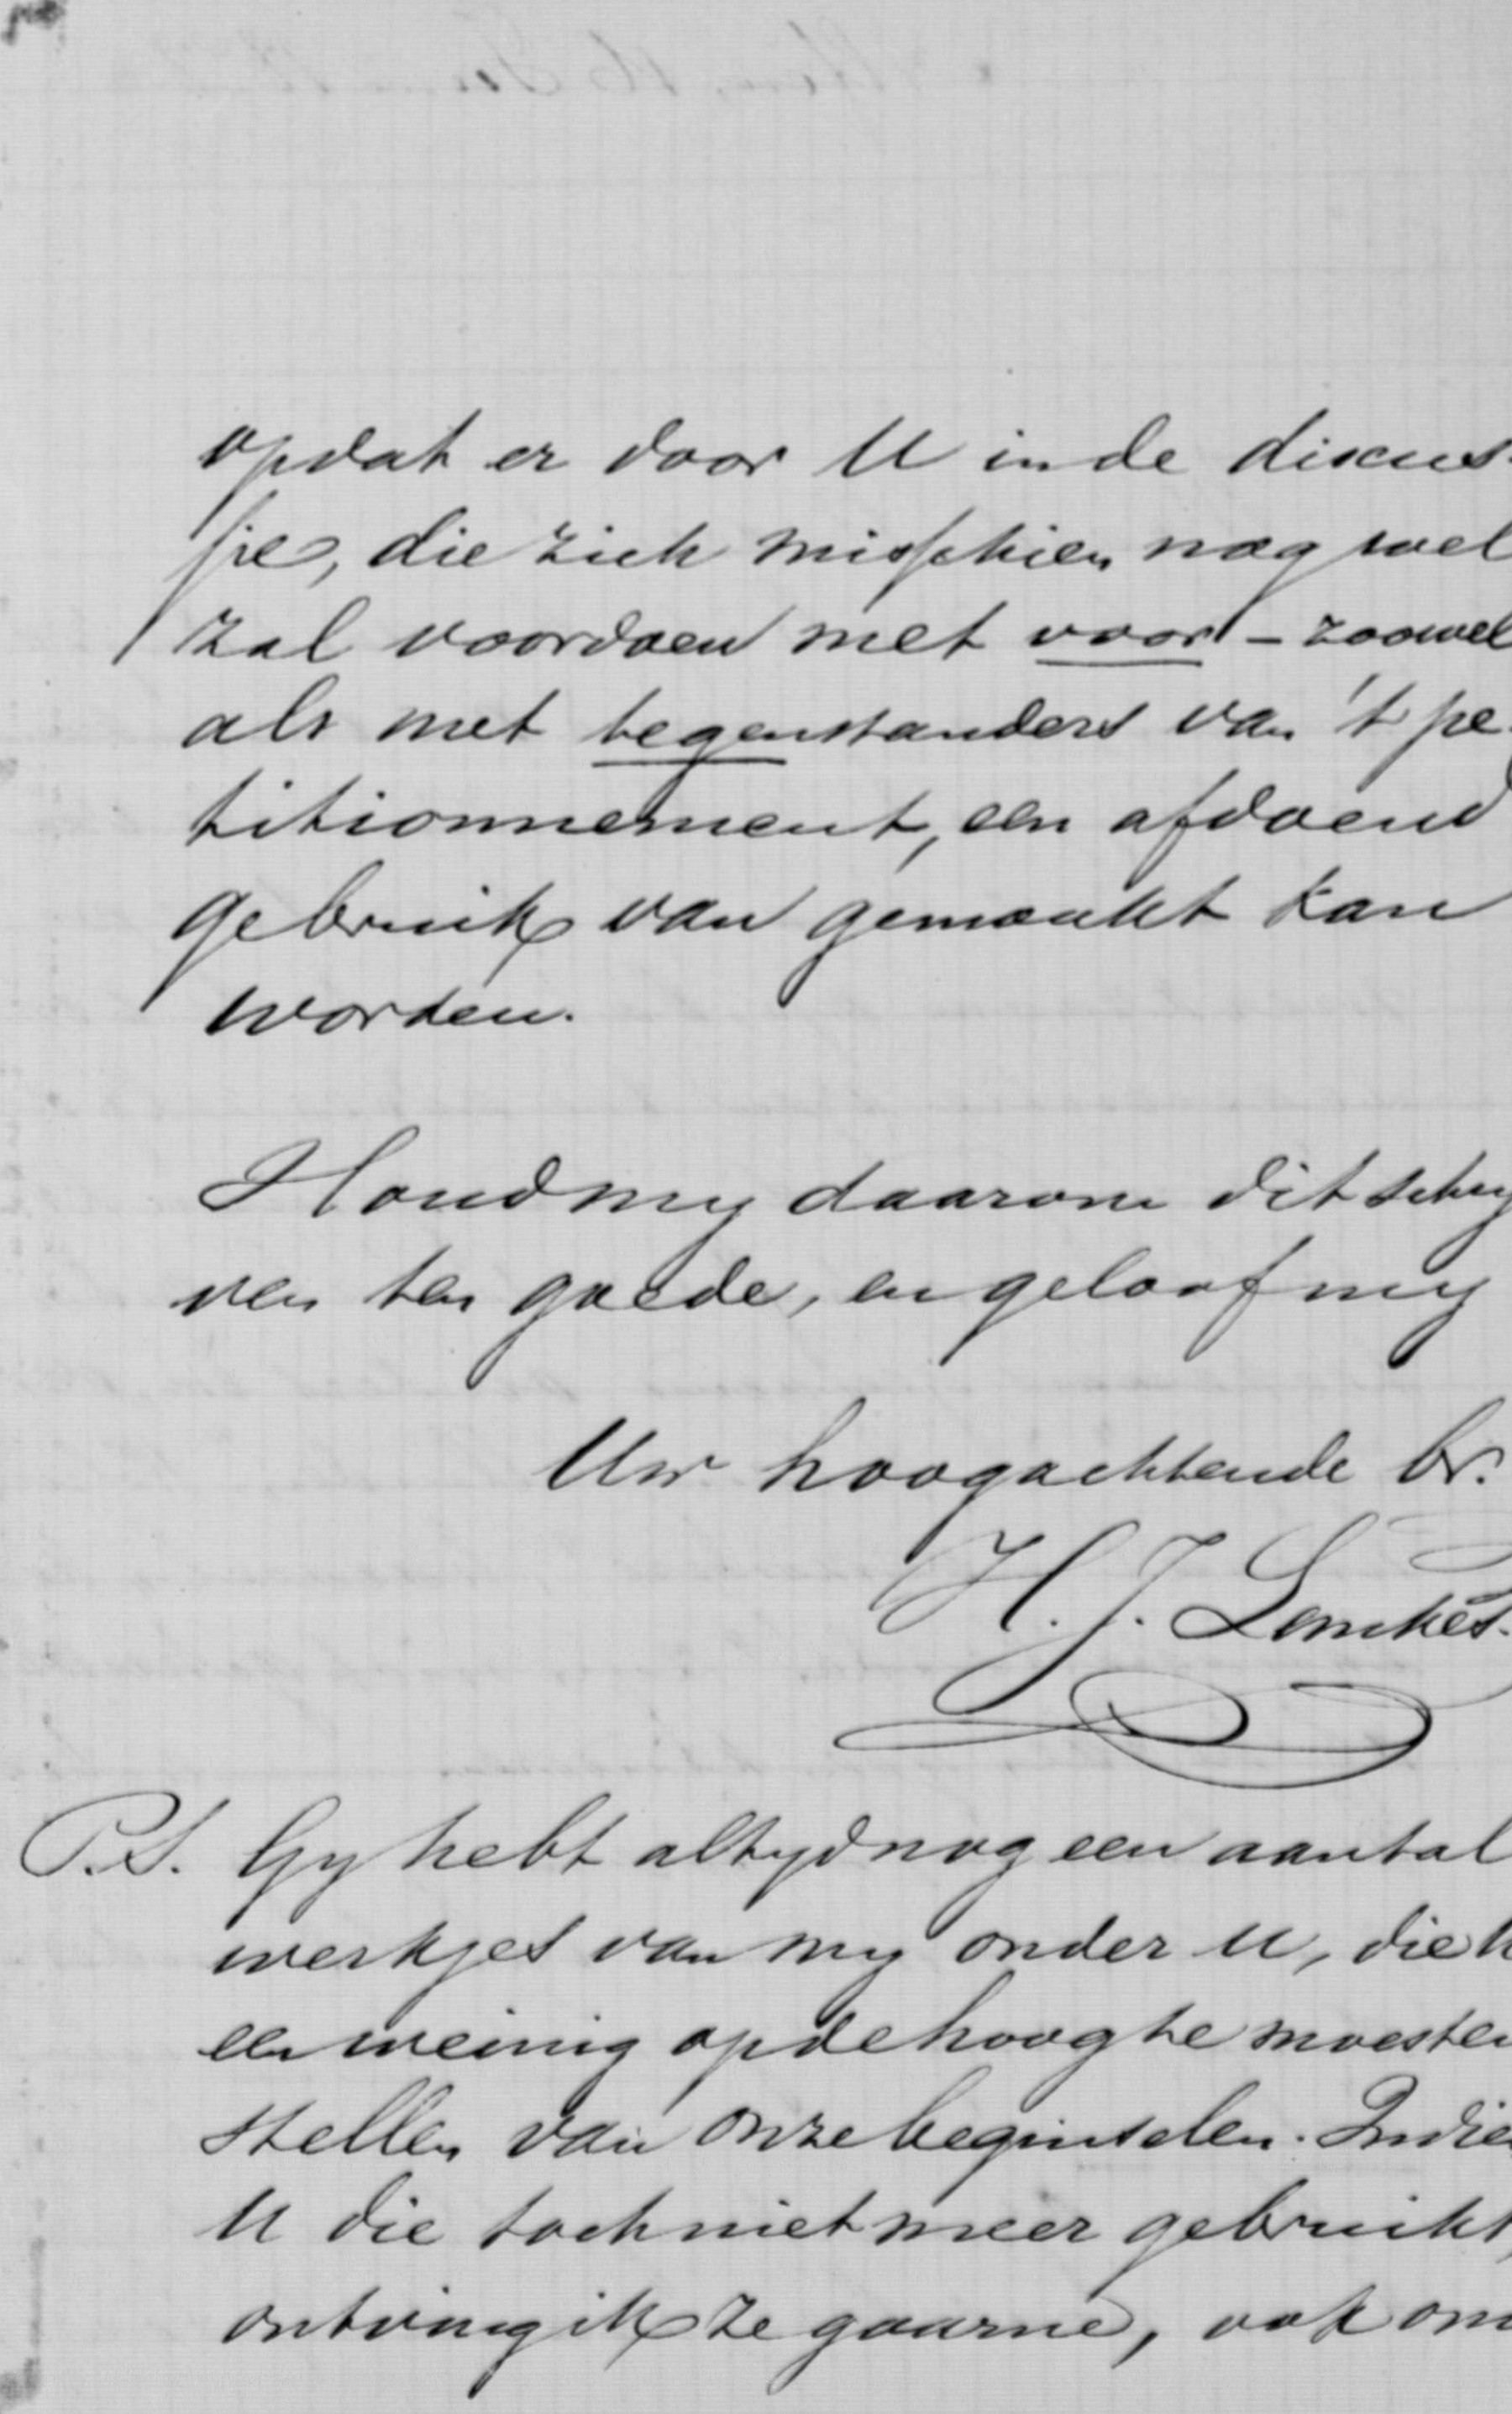 opdat er door U in de discus-
sie, die zich misschien nog wel
zal voordoen met voor- zoowel
als met tegenstanders van 't pe-
titionnement, een afdoend
gebruik van gemaakt kan
worden.
Houd my daarom dit schry
ven ten goede, en geloof my
Uw hoogachtende br.
H. J. Lemkes.
P.S. Gy hebt altyd nog een aantal
werkjes van my onder U, die U
een weinig op de hoogte moesten
stellen van onze beginselen. Indien
U die toch niet meer gebruikt,
ontving ik ze gaarne, ook om